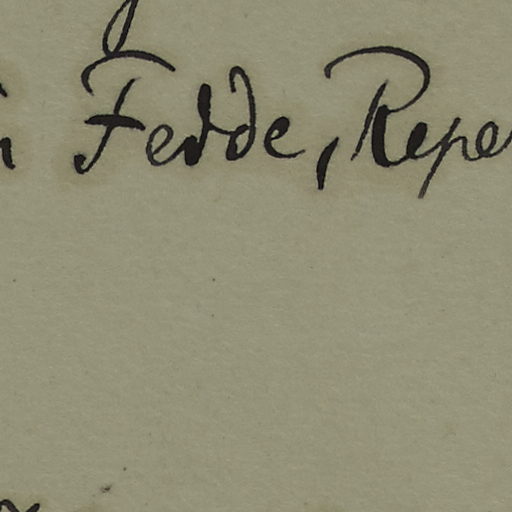 Fedde, Repe